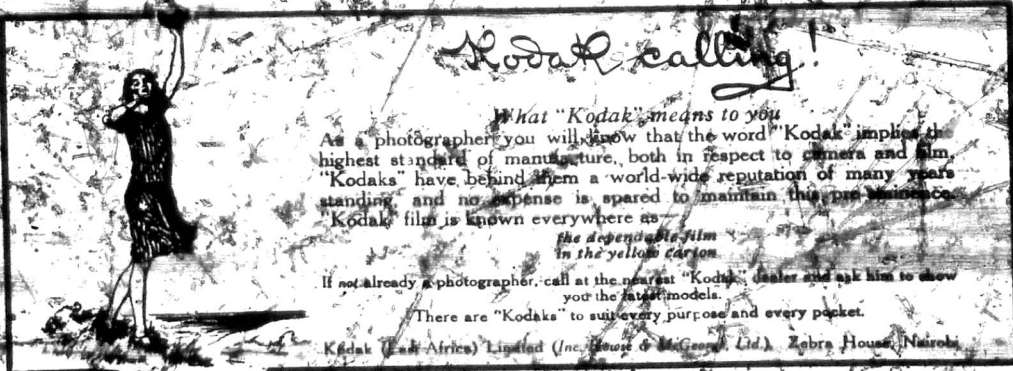 Kodak calling!
What "Kodak" means to you
As a photographer you will know that the word "Kodak" implies the
highest standard of manufacture, both in respect to camera and film.
"Kodaks" have behind them a world-wide reputation of many years
standing, and no expense is spared to maintain this pre-eminence.
"Kodak" film is known everywhere as—
the dependable film
in the yellow carton
If not already a photographer, call at the nearest "Kodak" dealer and ask him to show
you the latest models.
There are "Kodaks" to suit every purpose and every pocket.
Kodak (East Africa) Limited (Inc. Howse & McGeorge Ltd.) Zebra House, Nairobi